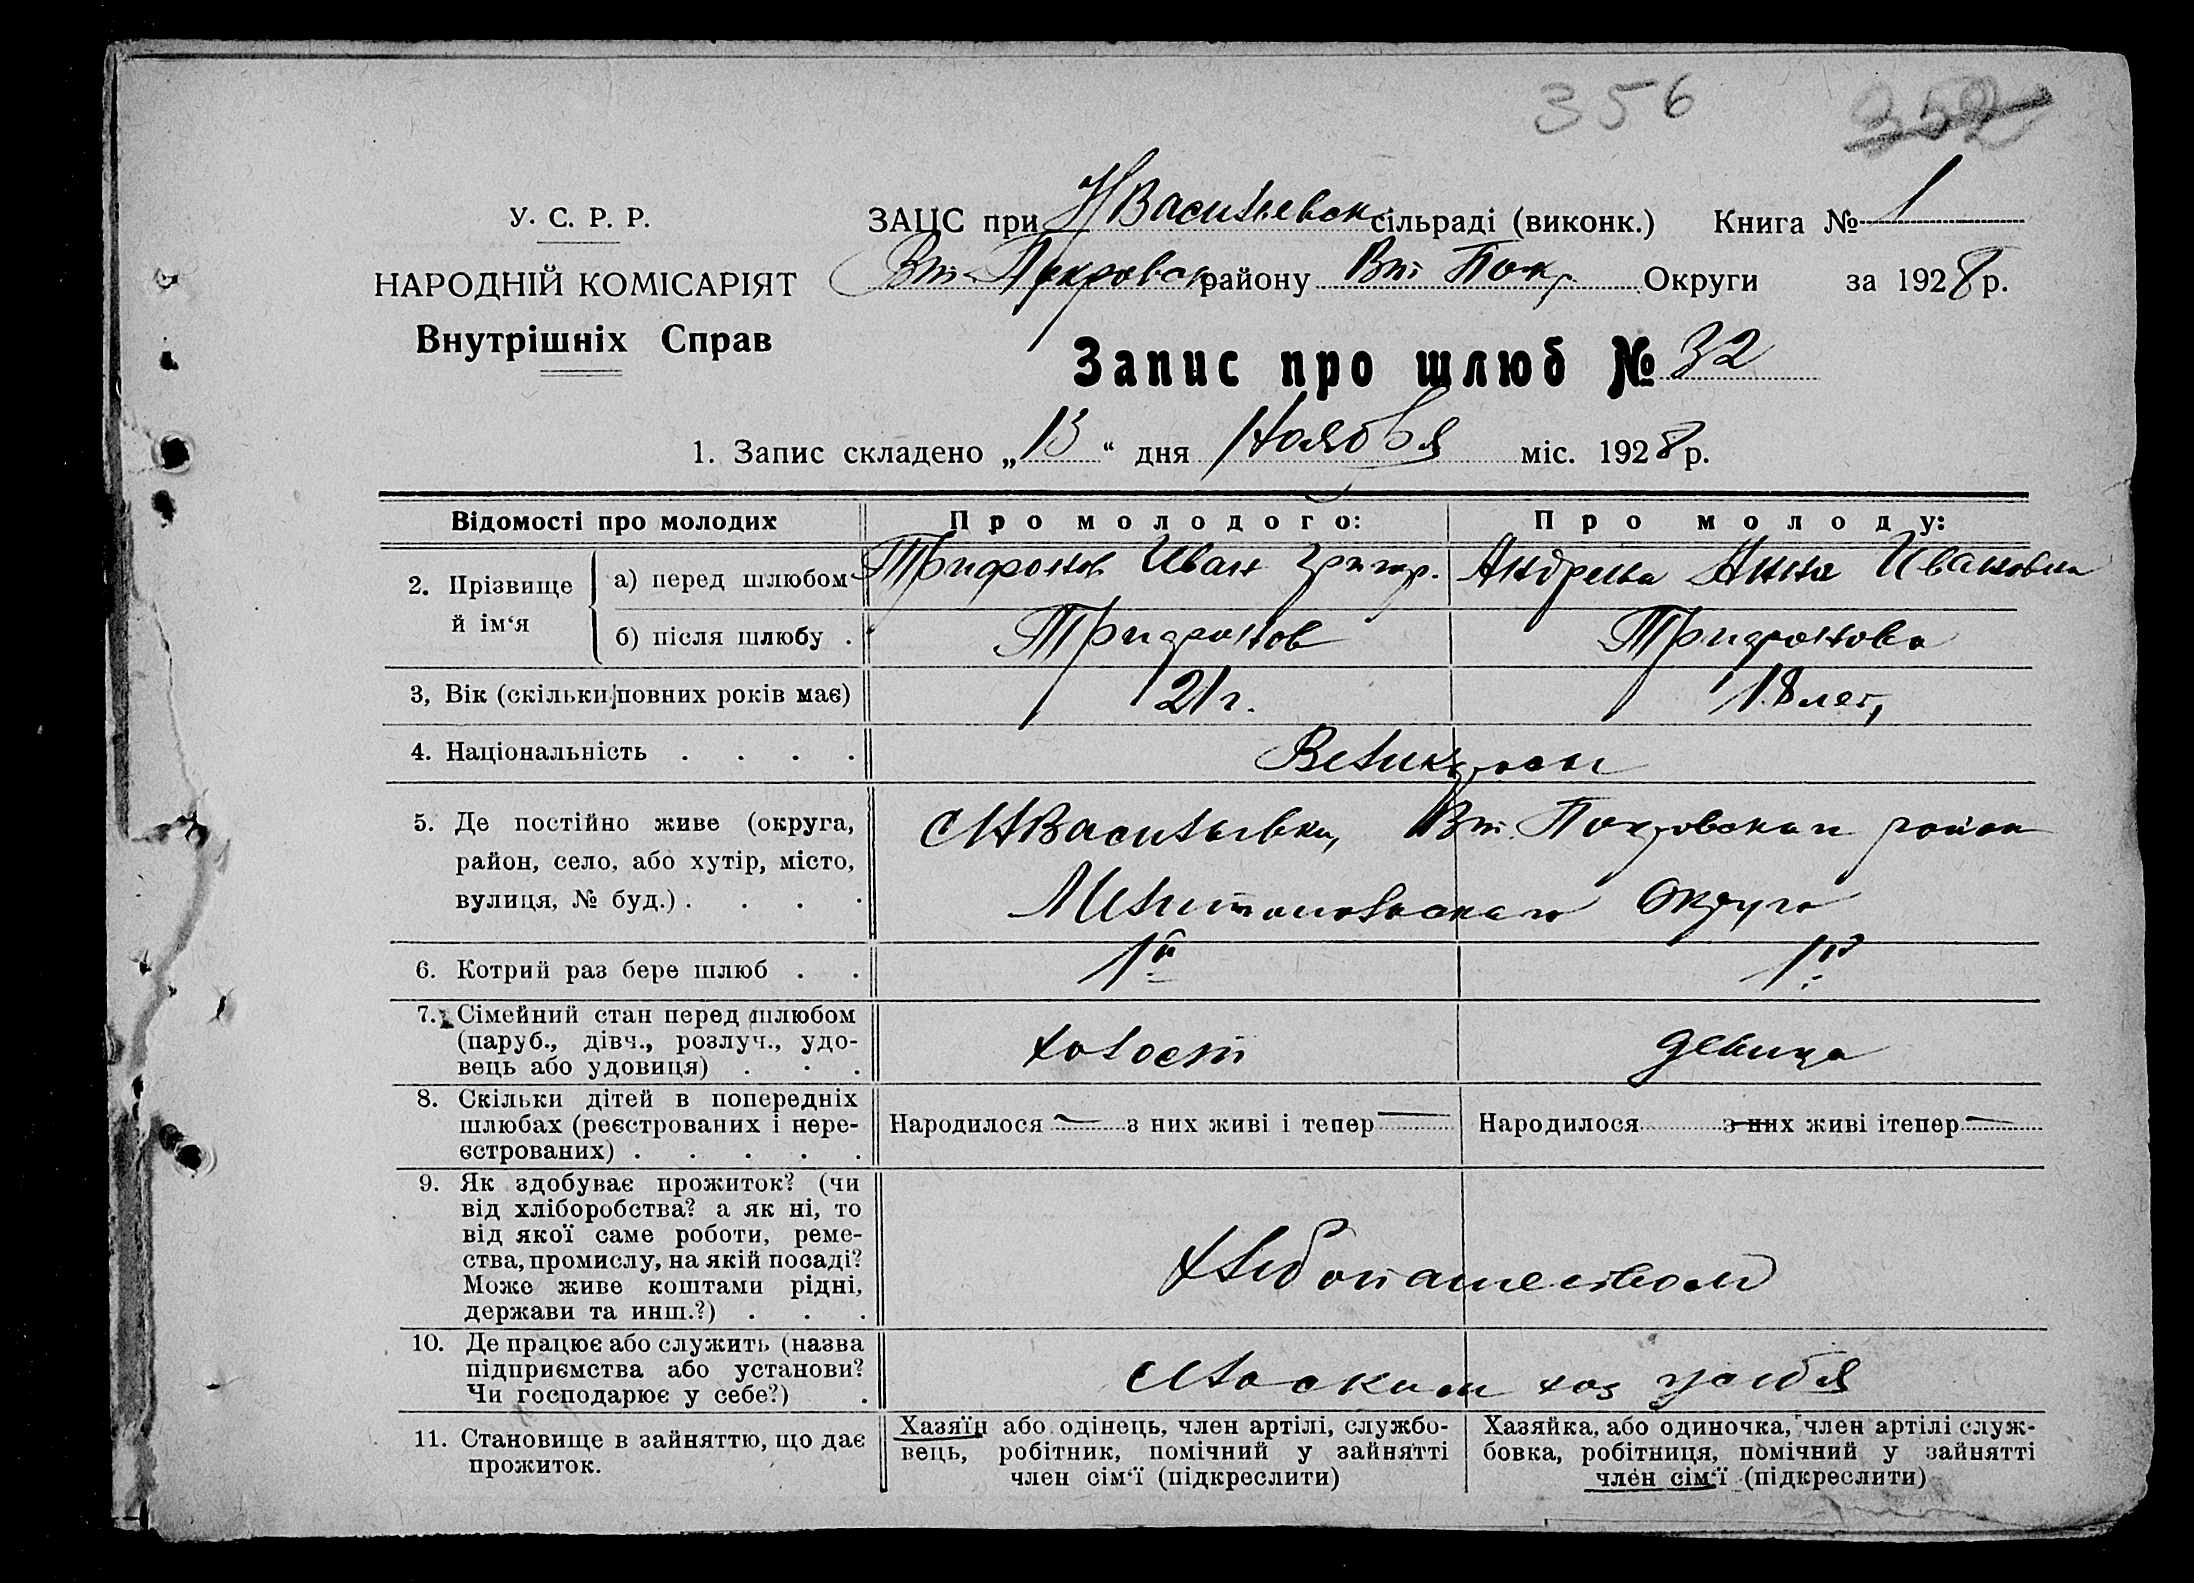 356 352
У. С. Р. Р.
НАРОДНІЙ КОМІСАРІЯТ
Внутрішніх Справ
ЗАЦС при НВасильевск сільраді (виконк.) Книга № 1
Вт-Покровск району Вт Покр. Округи за 1928 р.
Запис про шлюб № 32
1. Запис складено „13“ дня Ноября міс. 1928 р.
Відомості про молодих Про молодого: Про молоду:
2. Прізвище й ім‘я
а) перед шлюбом Трифонов Иван Григор. Андреева Анна Ивановна
б) після шлюбу . Трифонов Трифонова
3, Вік (скільки повних років має) 21 г. 18 лет,
4. Національність . . . . Великоросы
5. Де постійно живе (округа,
район, село, або хутір, місто,
вулиця, № буд.) . . . .
НВасильевка, Вт. Покровскаго район
Мелитопольскаго Округа
6. Котрий раз бере шлюб . . 1й 1й
7. Сімейний стан перед шлюбом
(паруб., дівч., розлуч., удо-
вець або удовиця) . . .
холост девица
8. Скільки дітей в попередніх
шлюбах (реєстрованих і нере-
єстрованих) . . . . .
Народилося — з них живі і тепер — Народилося з них живі ітепер —
9. Як здобуває прожиток? (чи
від хліборобства? а як ні, то
від якої саме роботи, реме-
ства, промислу, на якій посаді?
Може живе коштами рідні,
держави та инш.?) . . .
хлибопашеством
10. Де працює або служить (назва
підприємства або установи?
Чи господарює у себе?) .
хоз у себя
11. Становище в зайняттю, що дає
прожиток.
Хазяїн або одінець, член артілі, службо-
вець, робітник, помічний у зайнятті
член сім‘ї (підкреслити)
Хазяйка, або одиночка, член артілі служ-
бовка, робітниця, помічний у зайнятті
член сім‘ї (підкреслити)